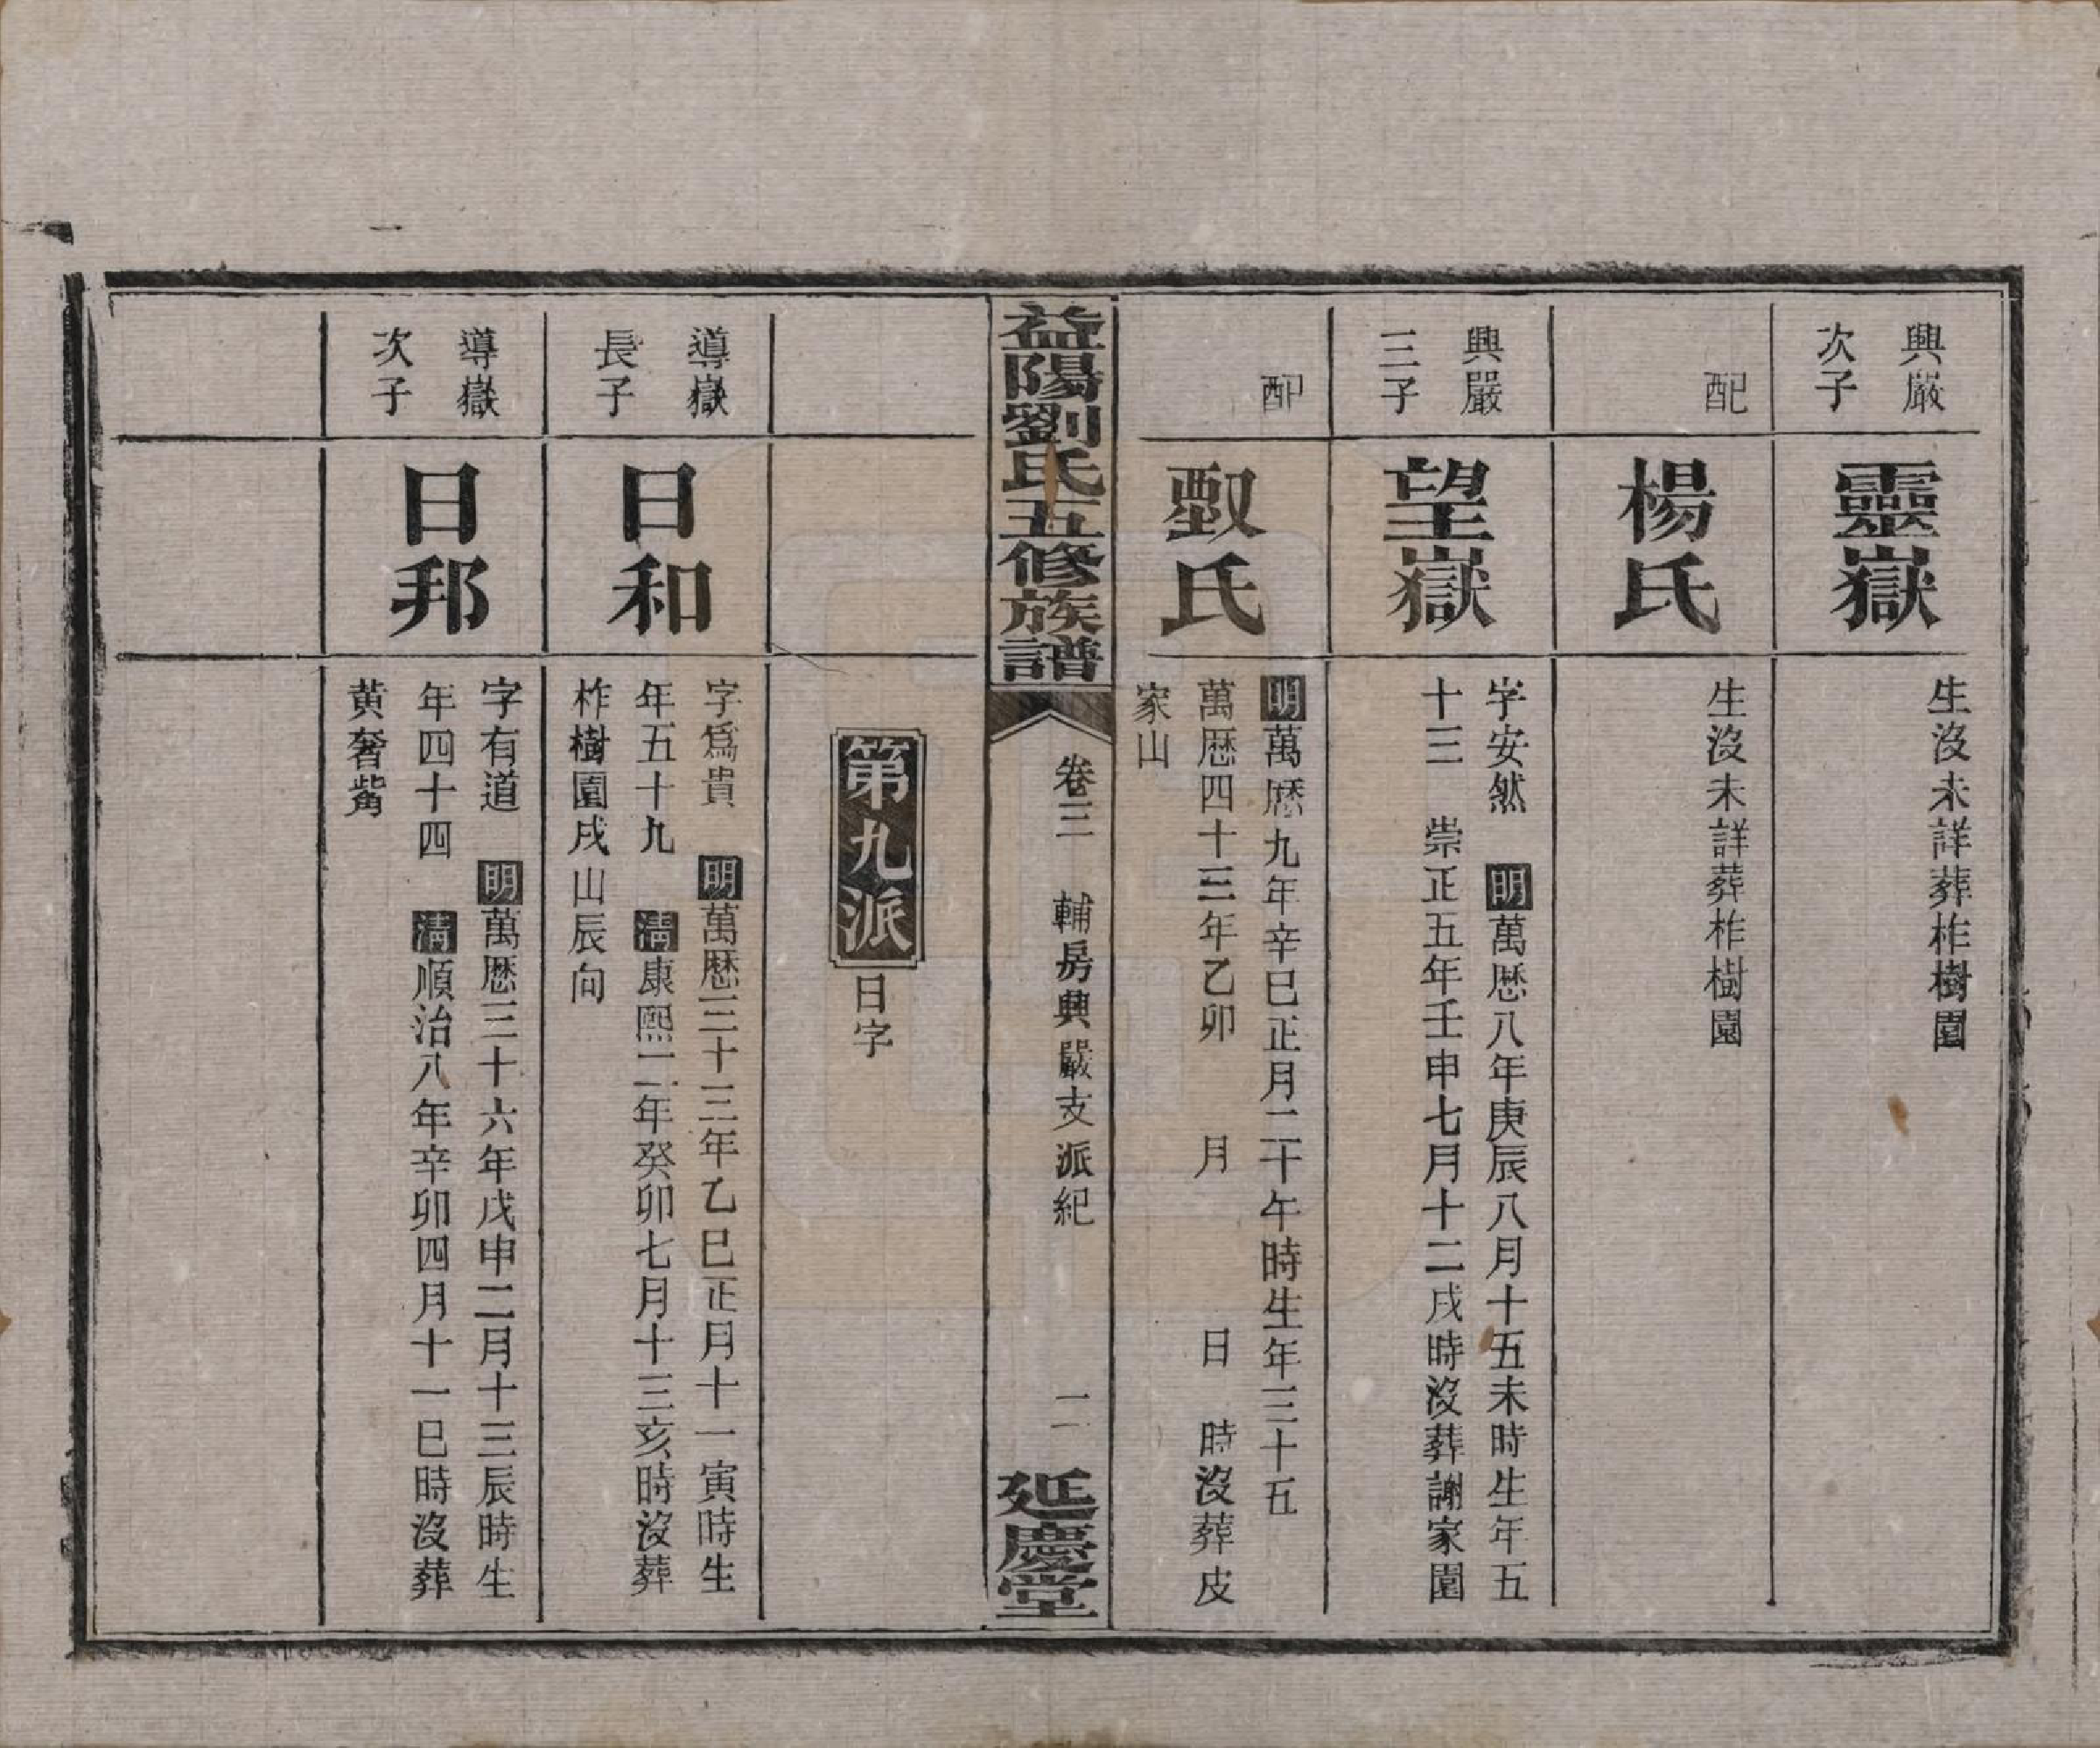 興嚴
次子
靈嶽
生沒未詳葬柞樹園
配
楊氏
生沒未詳葬柞樹園
興嚴
三子
望嶽
字安然　明萬厯八年庚辰八月十五未時生年五
十三　崇正五年壬申七月十二戌時沒葬謝家園
配
氏
明萬厯九年辛巳正月二十午時生年三十五
萬厯四十三年乙卯　月　日　時沒葬皮
家山
益陽劉氏五修族譜
卷三　輔房興嚴支派紀　二
延慶堂
第九派
日字
導嶽
長子
日和
字爲貴　明萬厯三十三年乙巳正月十一寅時生
年五十九　清康熙二年癸卯七月十三亥時沒葬
柞樹園戌山辰向
導嶽
次子
日邦
字有道　明萬厯三十六年戊申二月十三辰時生
年四十四　清順治八年辛卯四月十一巳時沒葬
黄